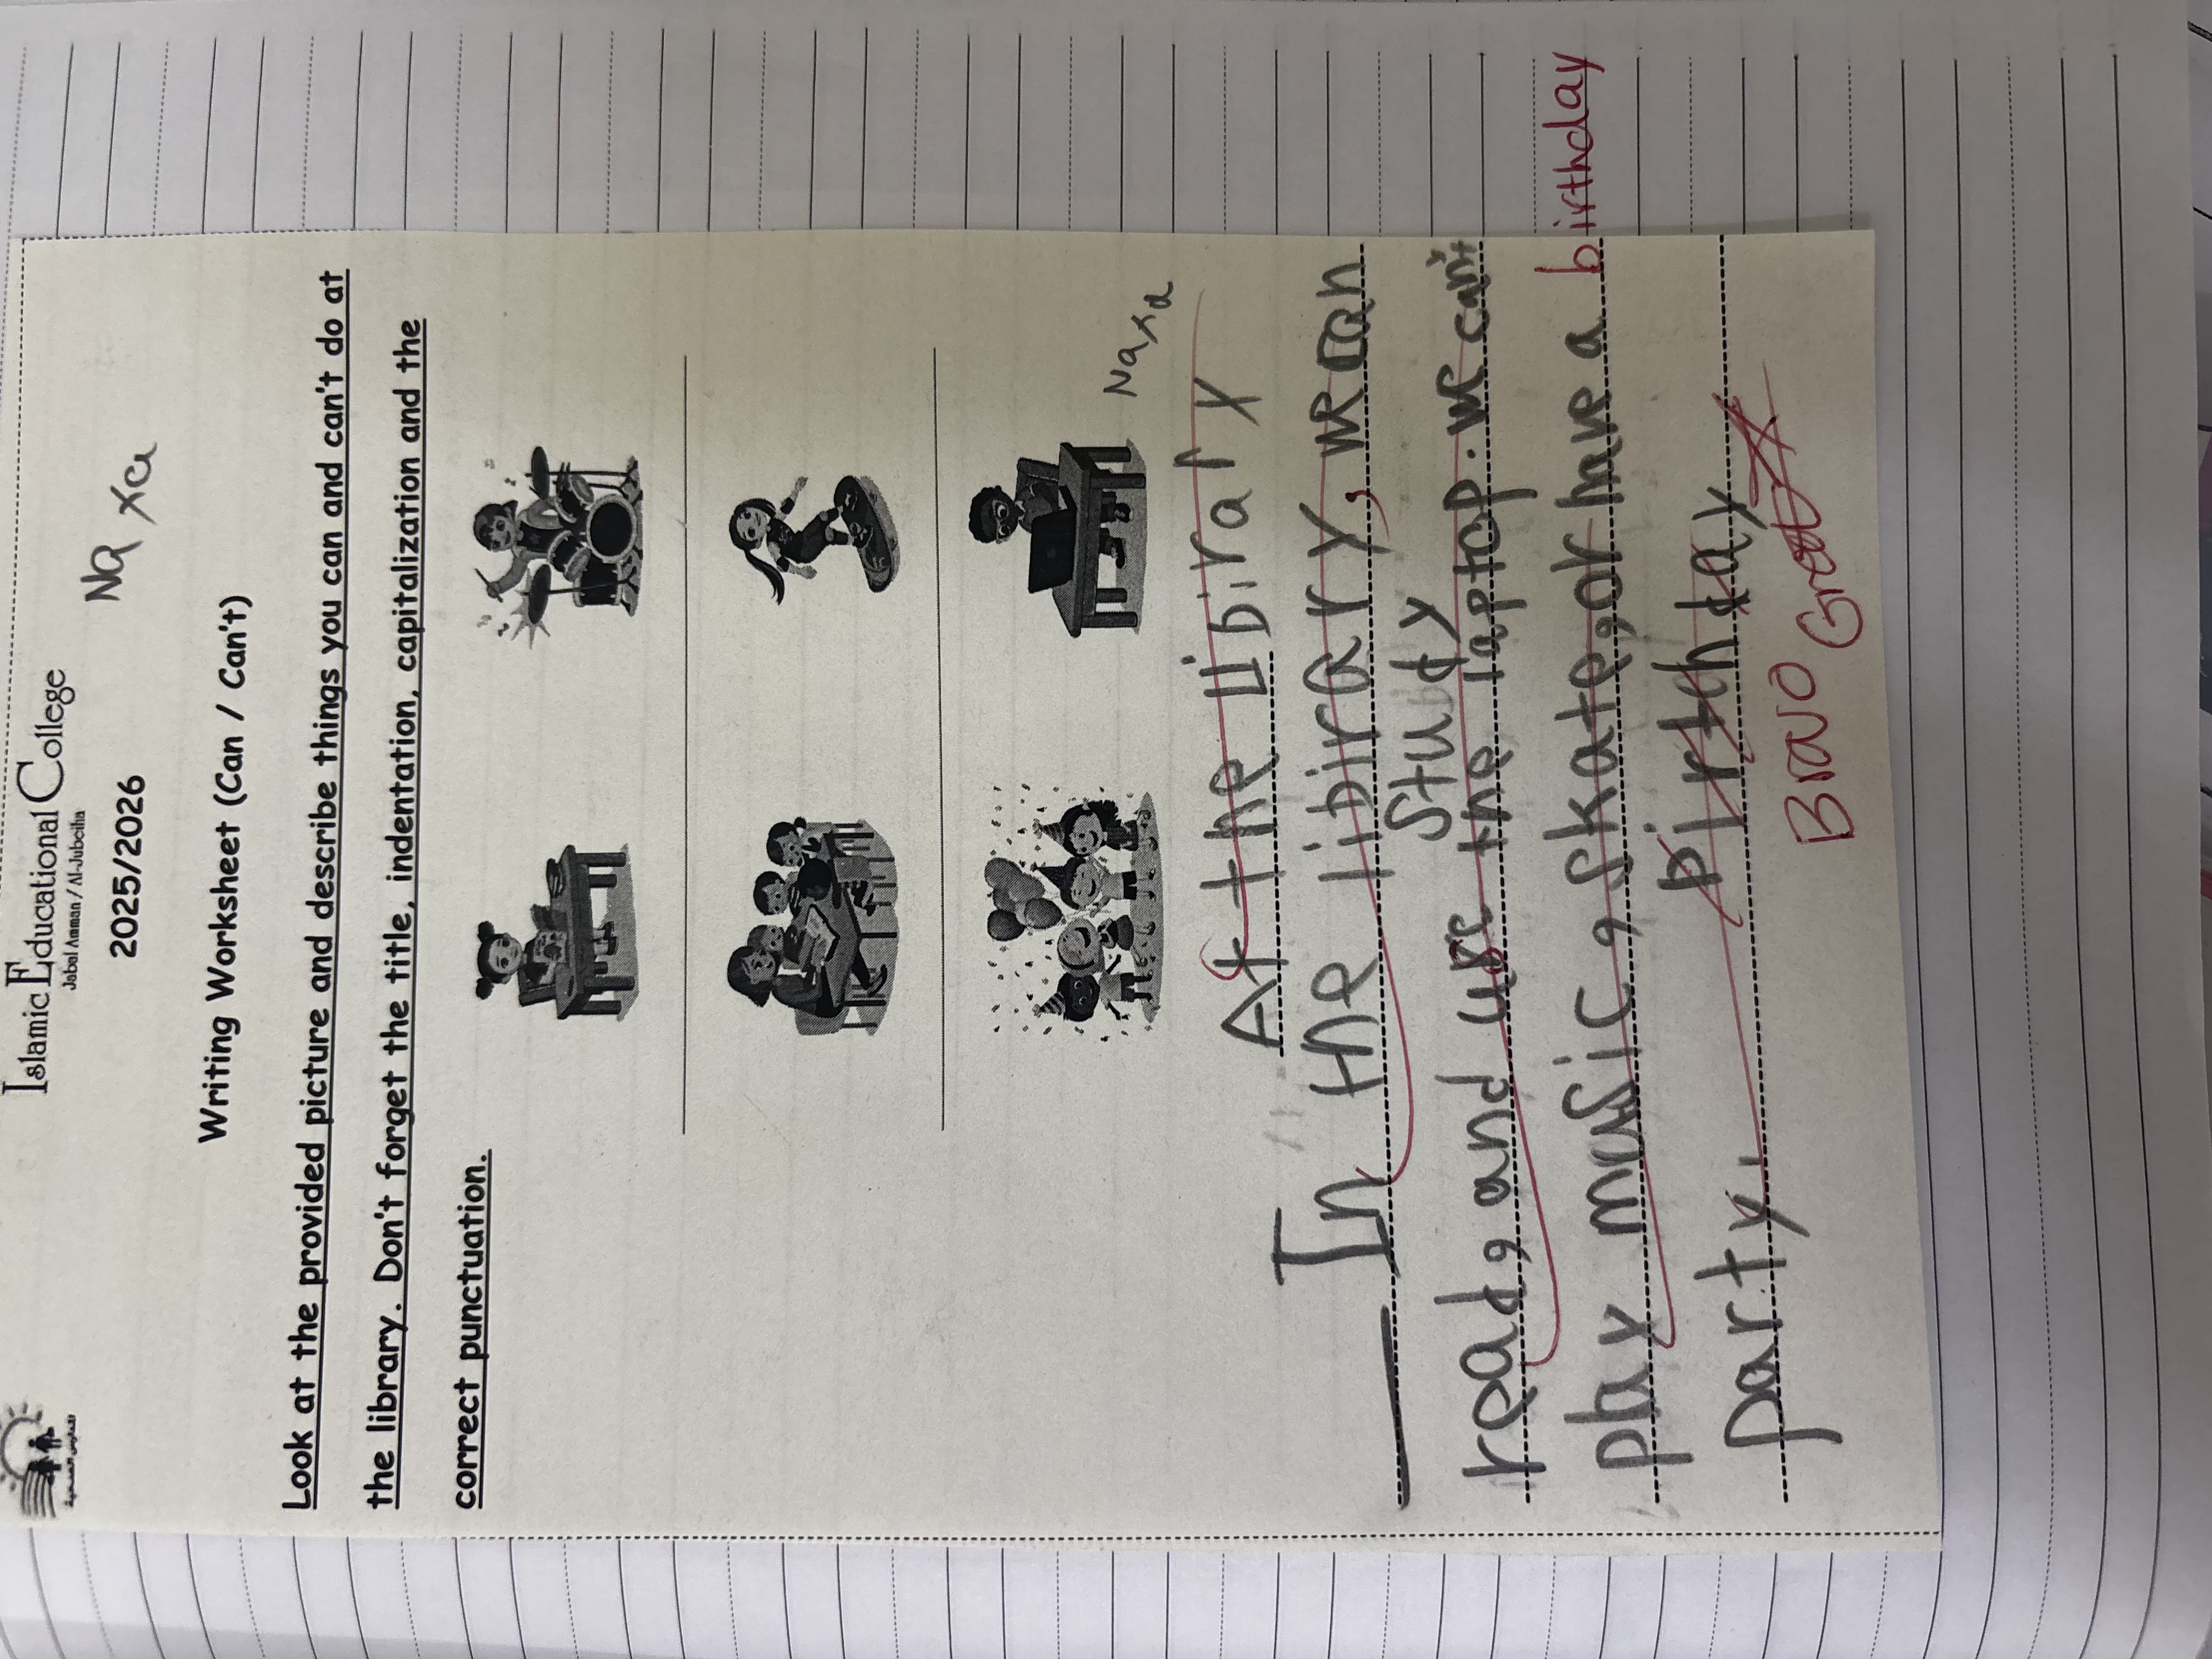 Islamic Educational College
Jabal Amman / Al-Jubeiha
2025/2026
Writing Worksheet (Can / Can't)
Look at the provided picture and describe things you can and can't do at
the library. Don't forget the title, indentation, capitalization and the
correct punctuation.
At the Libirary
In the libirary, we can
study
read, and use the laptop. we can't
play music, skate, or have a birthday
pirthday
party.
Bravo Great